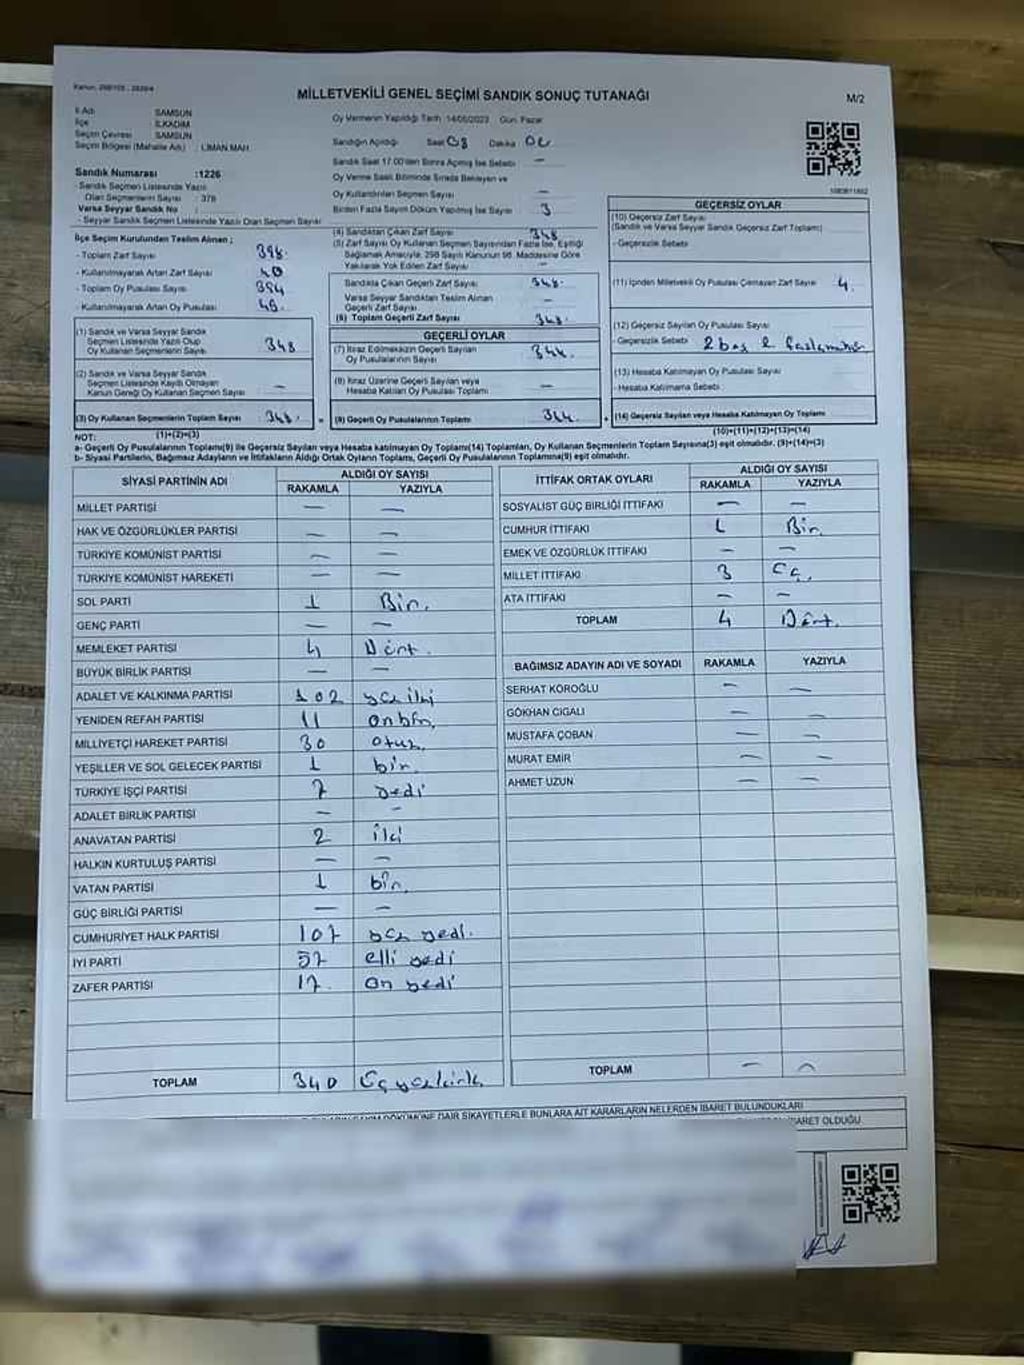 MİLLETVEKİLİ GENEL SEÇİMİ SANDIK SONUÇ TUTANAĞI
M/2
İl Adı SAMSUN
İlçe İLKADIM
Seçim Çevresi SAMSUN
Seçim Bölgesi (Mahalle Adı) : LİMAN MAH.
Sandık Numarası :1226
- Sandık Seçmen Listesinde Yazılı
Olan Seçmenlerin Sayısı : 378
Varsa Seyyar Sandık No :
- Seyyar Sandık Seçmen Listesinde Yazılı Olan Seçmen Sayısı
Oy Vermenin Yapıldığı Tarih :14/05/2023 Gün: Pazar
Sandığın Açıldığı Saat 08 Dakika
Sandık Saat 17.00'den Sonra Açılmış İse Sebebi —
Oy Verme Saati Bitiminde Sırada Bekleyen ve
Oy Kullandırılan Seçmen Sayısı —
Birden Fazla Sayım Döküm Yapılmış İse Sayısı 3
İlçe Seçim Kurulundan Teslim Alınan ;
- Toplam Zarf Sayısı 398.
- Kullanılmayarak Artan Zarf Sayısı
- Toplam Oy Pusulası Sayısı
- Kullanılmayarak Artan Oy Pusulası
(1) Sandık ve Varsa Seyyar Sandık
Seçmen Listesinde Yazılı Olup
Oy Kullanan Seçmenlerin Sayısı 348
(2) Sandık ve Varsa Seyyar Sandık
Seçmen Listesinde Kayıtlı Olmayan
Kanun Gereği Oy Kullanan Seçmen Sayısı —
(3) Oy Kullanan Seçmenlerin Toplam Sayısı 348.
(1)+(2)=(3)
(4) Sandıktan Çıkan Zarf Sayısı 348
(5) Zarf Sayısı Oy Kullanan Seçmen Sayısından Fazla İse, Eşitliği
Sağlamak Amacıyla, 298 Sayılı Kanunun 98. Maddesine Göre
Yakılarak Yok Edilen Zarf Sayısı —
Sandıkta Çıkan Geçerli Zarf Sayısı 348.
Varsa Seyyar Sandıktan Teslim Alınan
Geçerli Zarf Sayısı —
(6) Toplam Geçerli Zarf Sayısı 348.
GEÇERLİ OYLAR
(7) İtiraz Edilmeksizin Geçerli Sayılan
Oy Pusulalarının Sayısı 344.
(8) İtiraz Üzerine Geçerli Sayılan veya
Hesaba Katılan Oy Pusulası Toplamı —
(9) Geçerli Oy Pusulalarının Toplamı 344.
GEÇERSİZ OYLAR
(10) Geçersiz Zarf Sayısı
(Sandık ve Varsa Seyyar Sandık Geçersiz Zarf Toplamı)
- Geçersizlik Sebebi
(11) İçinden Milletvekili Oy Pusulası Çıkmayan Zarf Sayısı 4.
(12) Geçersiz Sayılan Oy Pusulası Sayısı
- Geçersizlik Sebebi 2 boş 2
(13) Hesaba Katılmayan Oy Pusulası Sayısı
- Hesaba Katılmama Sebebi
(14) Geçersiz Sayılan veya Hesaba Katılmayan Oy Toplamı
(10)+(11)+(12)+(13)=(14)
NOT:
a- Geçerli Oy Pusulalarının Toplamı(9) ile Geçersiz Sayılan veya Hesaba katılmayan Oy Toplamı(14) Toplamları, Oy Kullanan Seçmenlerin Toplam Sayısına(3) eşit olmalıdır. (9)+(14)=(3)
b- Siyasi Partilerin, Bağımsız Adayların ve İttifakların Aldığı Ortak Oyların Toplamı, Geçerli Oy Pusulalarının Toplamına(9) eşit olmalıdır.
SİYASİ PARTİNİN ADI ALDIĞI OY SAYISI
RAKAMLA YAZIYLA
MİLLET PARTİSİ — —
HAK VE ÖZGÜRLÜKLER PARTİSİ — —
TÜRKİYE KOMÜNİST PARTİSİ — —
TÜRKİYE KOMÜNİST HAREKETİ — —
SOL PARTİ 1 Bir.
GENÇ PARTİ — —
MEMLEKET PARTİSİ 4 Dört.
BÜYÜK BİRLİK PARTİSİ — —
ADALET VE KALKINMA PARTİSİ 102 yüz iki
YENİDEN REFAH PARTİSİ 11 onbir.
MİLLİYETÇİ HAREKET PARTİSİ 30 otuz.
YEŞİLLER VE SOL GELECEK PARTİSİ 1 bir.
TÜRKİYE İŞÇİ PARTİSİ 7 yedi
ADALET BİRLİK PARTİSİ — —
ANAVATAN PARTİSİ 2 iki
HALKIN KURTULUŞ PARTİSİ — —
VATAN PARTİSİ 1 bir.
GÜÇ BİRLİĞİ PARTİSİ — —
CUMHURİYET HALK PARTİSİ 107 yüz yedi.
İYİ PARTİ 57 elli yedi
ZAFER PARTİSİ 17. on yedi
TOPLAM 340 Üç yüz kırk
İTTİFAK ORTAK OYLARI ALDIĞI OY SAYISI
RAKAMLA YAZIYLA
SOSYALİST GÜÇ BİRLİĞİ İTTİFAKI — —
CUMHUR İTTİFAKI 1 Bir.
EMEK VE ÖZGÜRLÜK İTTİFAKI — —
MİLLET İTTİFAKI 3 Üç.
ATA İTTİFAKI — —
TOPLAM 4 Dört.
BAĞIMSIZ ADAYIN ADI VE SOYADI RAKAMLA YAZIYLA
SERHAT KÖROĞLU — —
GÖKHAN CIGALI — —
MUSTAFA ÇOBAN — —
MURAT EMİR — —
AHMET UZUN — —
TOPLAM — —
DÖKÜMÜNE DAİR ŞİKAYETLERLE BUNLARA AİT KARARLARIN NELERDEN İBARET BULUNDUKLARI
İBARET OLDUĞU